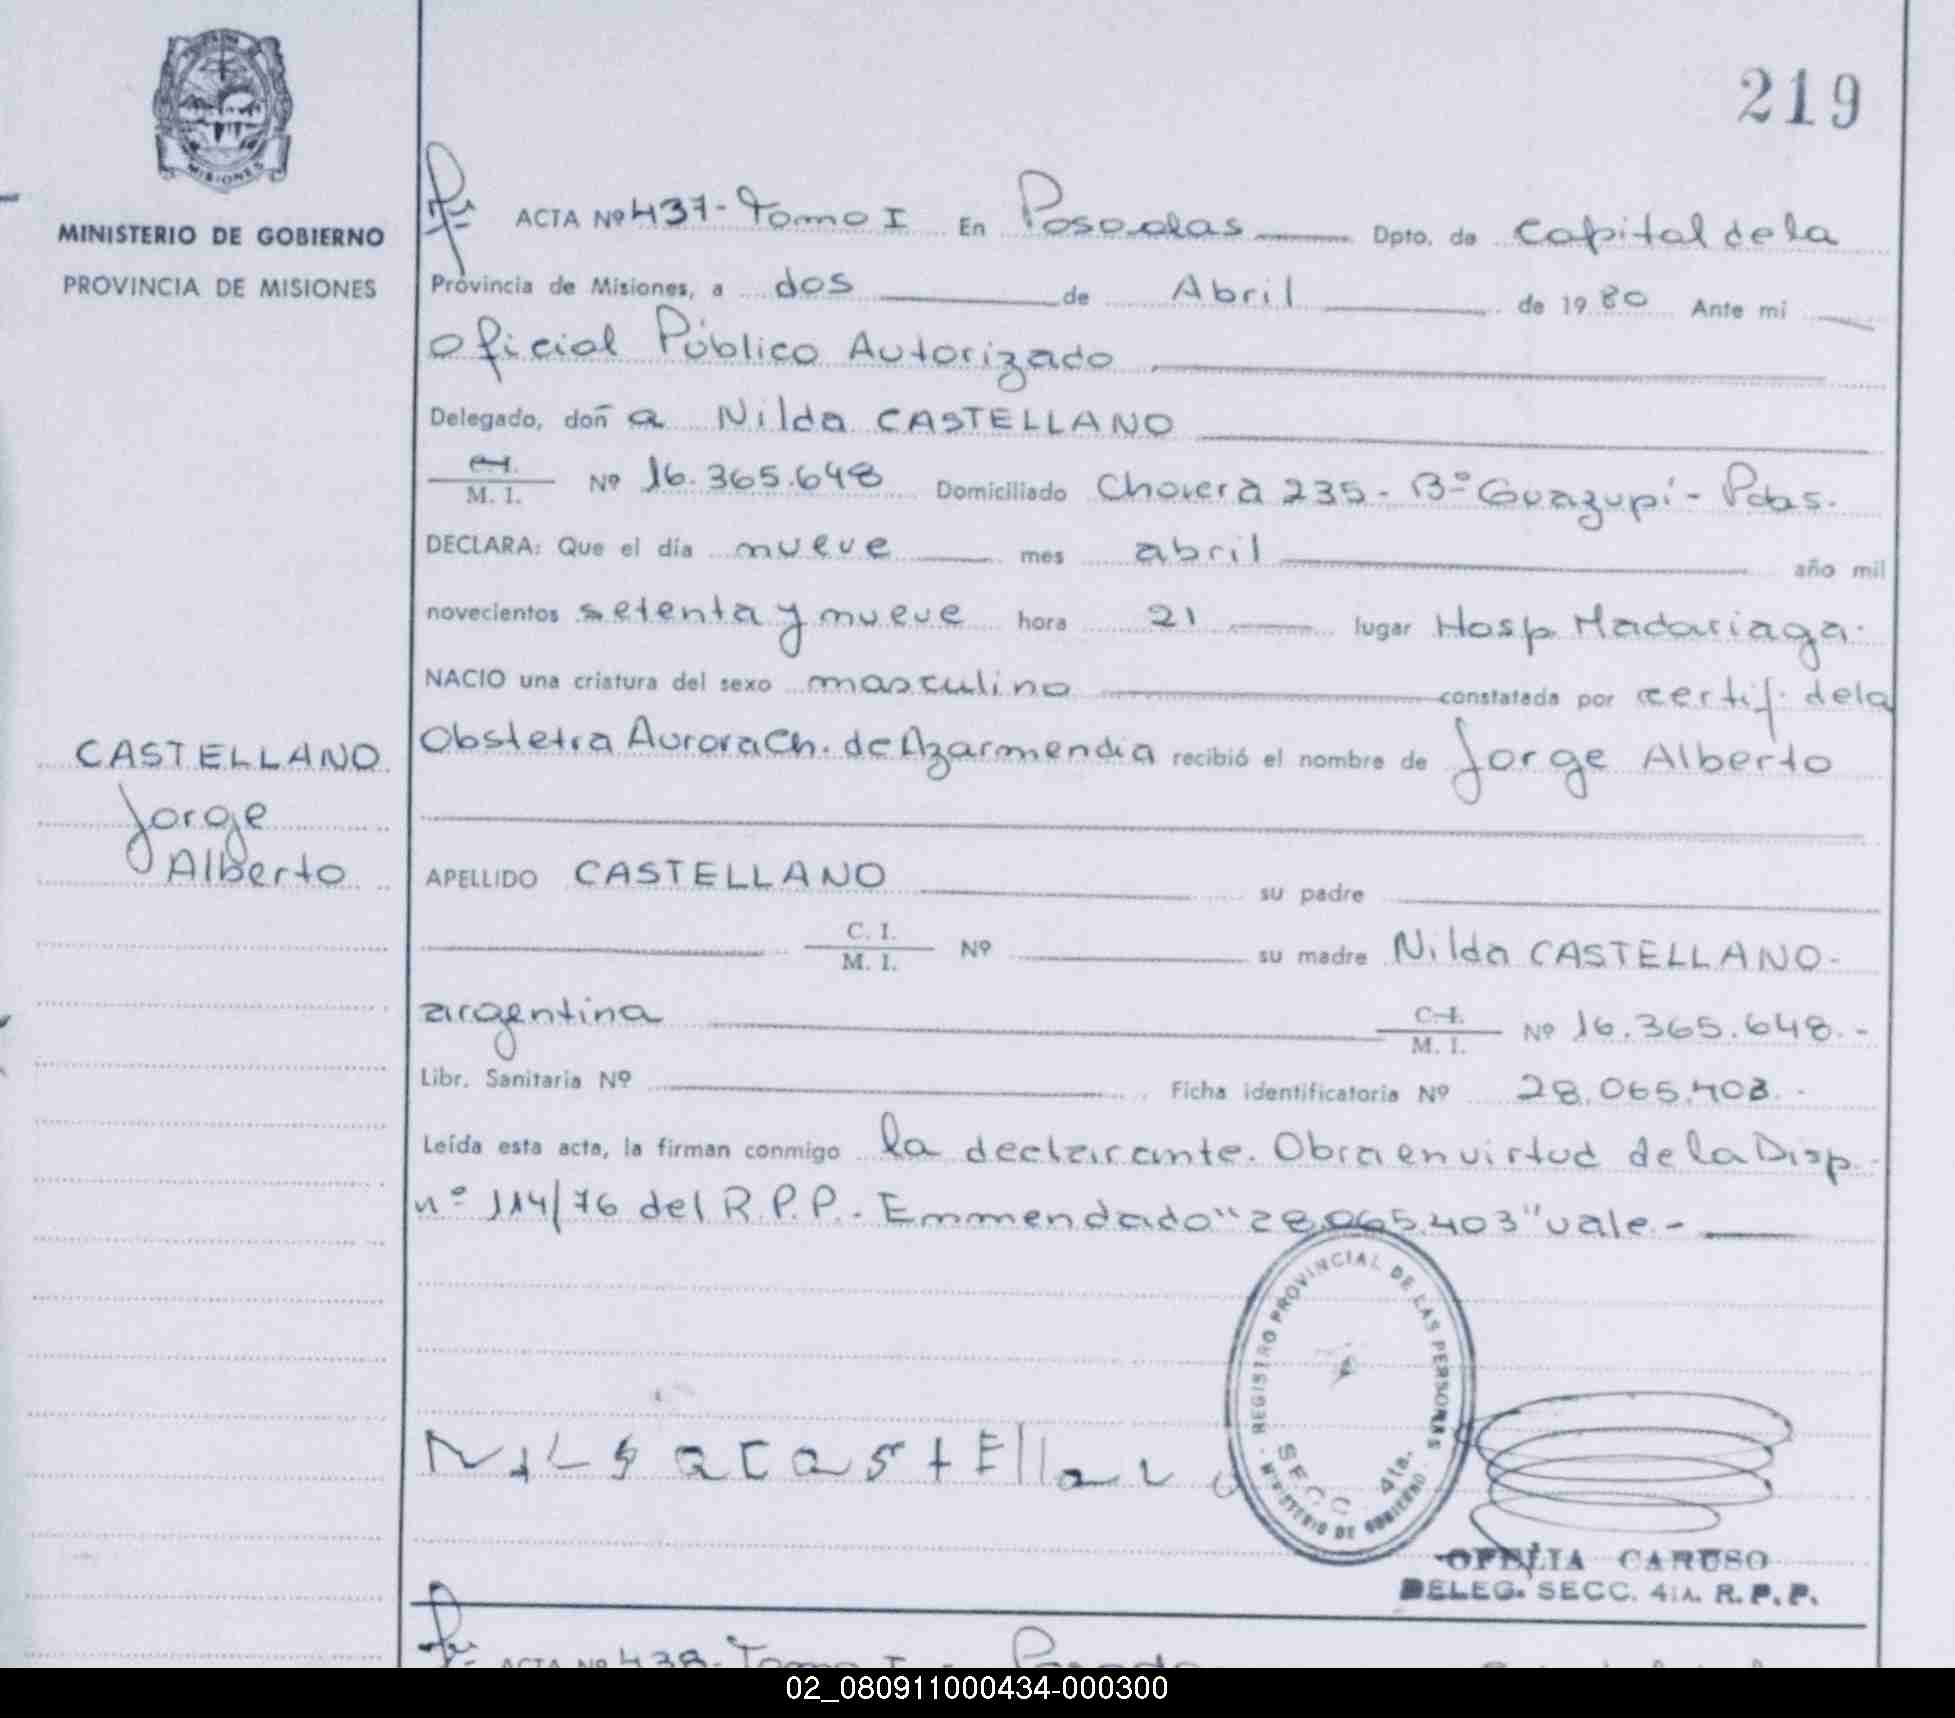 219
MISIONES
MINISTERIO DE GOBIERNO
PROVINCIA DE MISIONES
ACTA Nº 437- Tomo I En Posadas Dpto. de Capital de la
Provincia de Misiones, a dos de Abril de 1980 Ante mi
Oficial Público Autorizado
Delegado, doña Nilda CASTELLANO
C.I.
M. I. Nº 16.365.648 Domiciliado 235- Bº Guazupí- Pdas.
DECLARA: Que el día nueve mes abril año mil
novecientos setenta y nueve hora 21 lugar Hosp. Madariaga.
NACIO una criatura del sexo masculino constatada por certif. de la
Obstetra Aurora Ch. de Azarmendia recibió el nombre de Jorge Alberto
CASTELLANO
Jorge
Alberto
APELLIDO CASTELLANO su padre
C. I.
M. I. Nº su madre Nilda CASTELLANO-
argentina C.I.
M. I. Nº 16.365.648.-
Libr. Sanitaria Nº Ficha identificatoria Nº 28.065.403.-
Leída esta acta, la firman conmigo la declarante. Obra en virtud de la Disp.
nº 114/76 del R.P.P.- Emmendado "28.065.403" vale.-
REGISTRO PROVINCIAL DE LAS PERSONAS
SECC. 4ta.
MINISTERIO DE GOBIERNO
OFELIA CARUSO
DELEG. SECC. 4ta. R.P.P.
ACTA Nº 438- Tomo I
02_080911000434-000300